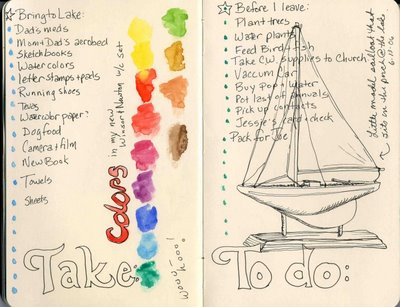 Bring to Lake:
Dad's meds
Mom+Dad's aerobed
Sketchbooks
Watercolors
letter stamps + pads
Running shoes
Tevas
Watercolor paper?
Dog food
Camera + film
New Book
Towels
Sheets
Take:
Colors
in my new
Winsor + Newton w/c set
Before I leave:
Plant trees
Water plants
Feed Bird/Fish
Take C.W. Supplies to Church
Vaccum Car
Buy Pop + Water
Pot last of annuals
Pick up contacts
Jessie's card + check
Pack for Joe
Little model sailboat that
sits on the porch @ the lake
To do: